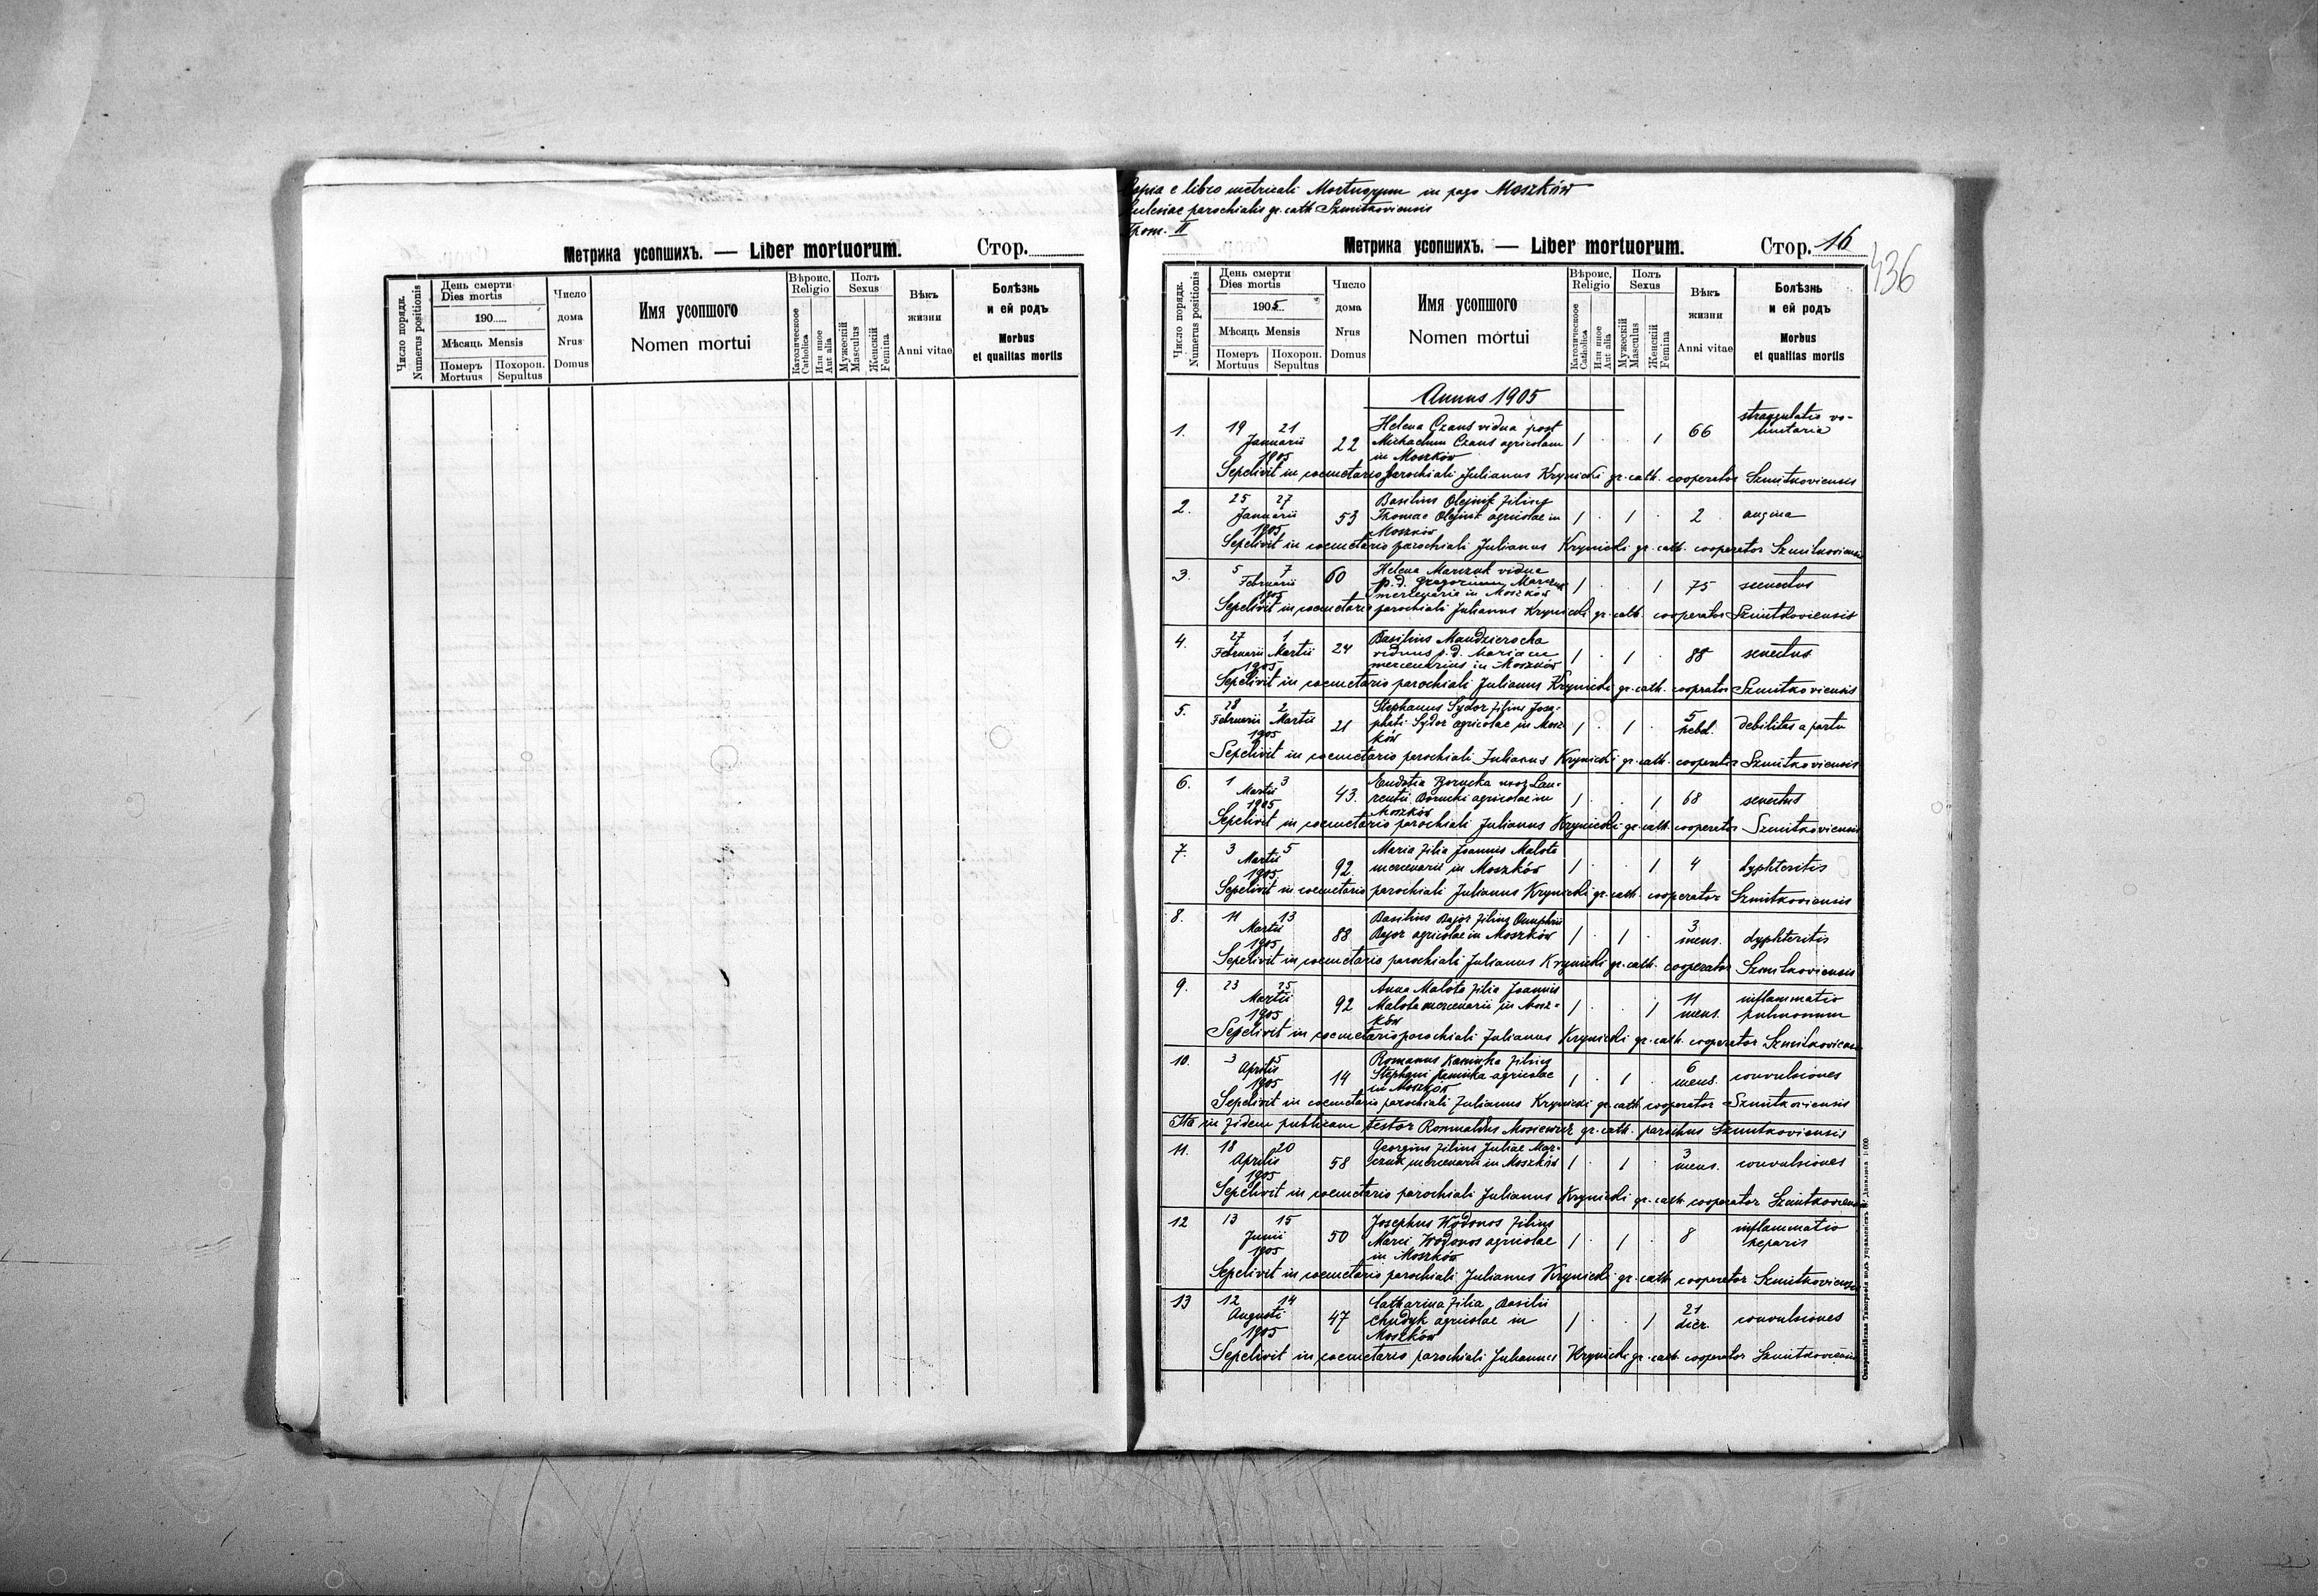 Метрика усопшихъ. — Liber mortuorum.
Стор.
Число порядк.
Numerus positionis
День смерти
Dies mortis
190
Мѣсяць Mensis
Померъ
Mortuus
Похорон.
Sepultus
Число
дома
Nrus
Domus
Имя усопшого
Nomen mortui
Вѣроис.
Religio
Католическоое
Catholica
Или иное
Aut alia
Полъ
Sexus
Мужескій
Masculus
Женскій
Femina
Вѣкъ
жизни
Anni vitae
Болѣзнь
и ей родъ
Morbus
et qualitas mortis
Copia e libro metricali Mortuorum in pago Moszków
Ecclesiae parochialis gr. cath. Szmitkoviensis
Tom. II
Метрика усопшихъ. — Liber mortuorum.
Стор. 16
436
Число порядк.
Numerus positionis
День смерти
Dies mortis
1905
Мѣсяць Mensis
Померъ
Mortuus
Похорон.
Sepultus
Число
дома
Nrus
Domus
Имя усопшого
Nomen mortui
Вѣроис.
Religio
Католическоое
Catholica
Или иное
Aut alia
Полъ
Sexus
Мужескій
Masculus
Женскій
Femina
Вѣкъ
жизни
Anni vitae
Болѣзнь
и ей родъ
Morbus
et qualitas mortis
Annus 1905
1. 19 21 Januarii 1905 22 Helena Czaus vidua post 1 . . 1 66 strangulatio vo-
Michaelum Czaus agricolam luntaria
in Moszków
Sepelivit in coemetario parochiali Julianus Krynicki gr. cath. cooperator Szmitkoviensis
2. 25 27 Januarii 1905 53 Basilius Olejnik filius 1 . 1 . 2 angina
Thomae Olejnik agricolae in
Moszków
Sepelivit in coemetario parochiali Julianus Krynicki gr. cath. cooperator Szmitkoviensis
3. 5 7 Februarii 1905 60 Helena Marczuk vidua 1 . . 1 75 senectus
p. d. Gregorium Marczuk
mercenaria in Moszków
Sepelivit in coemetario parochiali Julianus Krynicki gr. cath. cooperator Szmitkoviensis
4. 27 Februarii 1 Martii 1905 24 Basilius Mandzierocha 1 . 1 . 88 senectus
viduus p. d. Mariam
mercenarius in Moszków
Sepelivit in coemetario parochiali Julianus Krynicki gr. cath. cooprator Szmitkoviensis
5. 28 Februarii 2 Martii 1905 21 Stephanus Sydor filius Josa- 1 . 1 . 5 hebd. debilitas a partu
phati Sydor agricolae in Mosz-
ków
Sepelivit in coemetario parochiali Julianus Krynicki gr. cath. cooperator Szmitkoviensis
6. 1 3 Martii 1905 43. Eudotia Borucka uxor Lau- 1 . . 1 68 senectus
rentii Borucki agricolae in
Moszków
Sepelivit in coemetario parochiali Julianus Krynicki gr. cath. cooperator Szmitkoviensis
7. 3 5 Martii 1905 92 Maria filia Joannis Malota 1 . . 1 4 dyphteritis
mercenarii in Moszków
Sepelivit in coemetario parochiali Julianus Krynicki gr. cath. cooperator Szmitkoviensis
8. 11 13 Martii 1905 88 Basilius Bajor filius Onuphrii 1 . 1 . 3 mens. dyphteritis
Bajor agricolae in Moszków
Sepelivit in coemetario parochiali Julianus Krynicki gr. cath. cooperator Szmitkoviensis
9. 23 25 Martii 1905 92 Anna Malota filia Joannis 1 . . 1 11 mens. inflammatio
Malota mercenarii in Mosz- pulmonum
ków
Sepelivit in coemetario parochiali Julianus Krynicki gr. cath. cooperator Szmitkoviensis
10. 3 5 Aprilis 1905 14 Romanus Kaminka filius 1 . 1 . 6 mens. convulsiones
Stephani Kaminka agricolae
in Moszków
Sepelivit in coemetario parochiali Julianus Krynicki gr. cath. cooperator Szmitkoviensis
Ita in fidem publicam testor Romualdus Mosiewicz gr. cath. parochus Szmitkoviensis
11. 18 20 Aprilis 1905 58 Georgius filius Juliae Mar- 1 . 1 . 3 mens. convulsiones
czuk mercenarii in Moszków
Sepelivit in coemetario parochiali Julianus Krynicki gr. cath. cooperator Szmitkoviensis
12 13 15 Junii 1905 50 Josephus Wodonos filius 1 . 1 . 8 inflammatio
Marci Wodonos agricolae heparis
in Moszków
Sepelivit in coemetario parochiali Julianus Krynicki gr. cath. cooperator Szmitkoviensis
13 12 14 Augusti 1905 47 Catharina filia Basilii 1 . . 1 21 dier. convulsiones
Chudyk agricolae in
Moszków
Sepelivit in coemetario parochiali Julianus Krynicki gr. cath. cooperator Szmitkoviensis